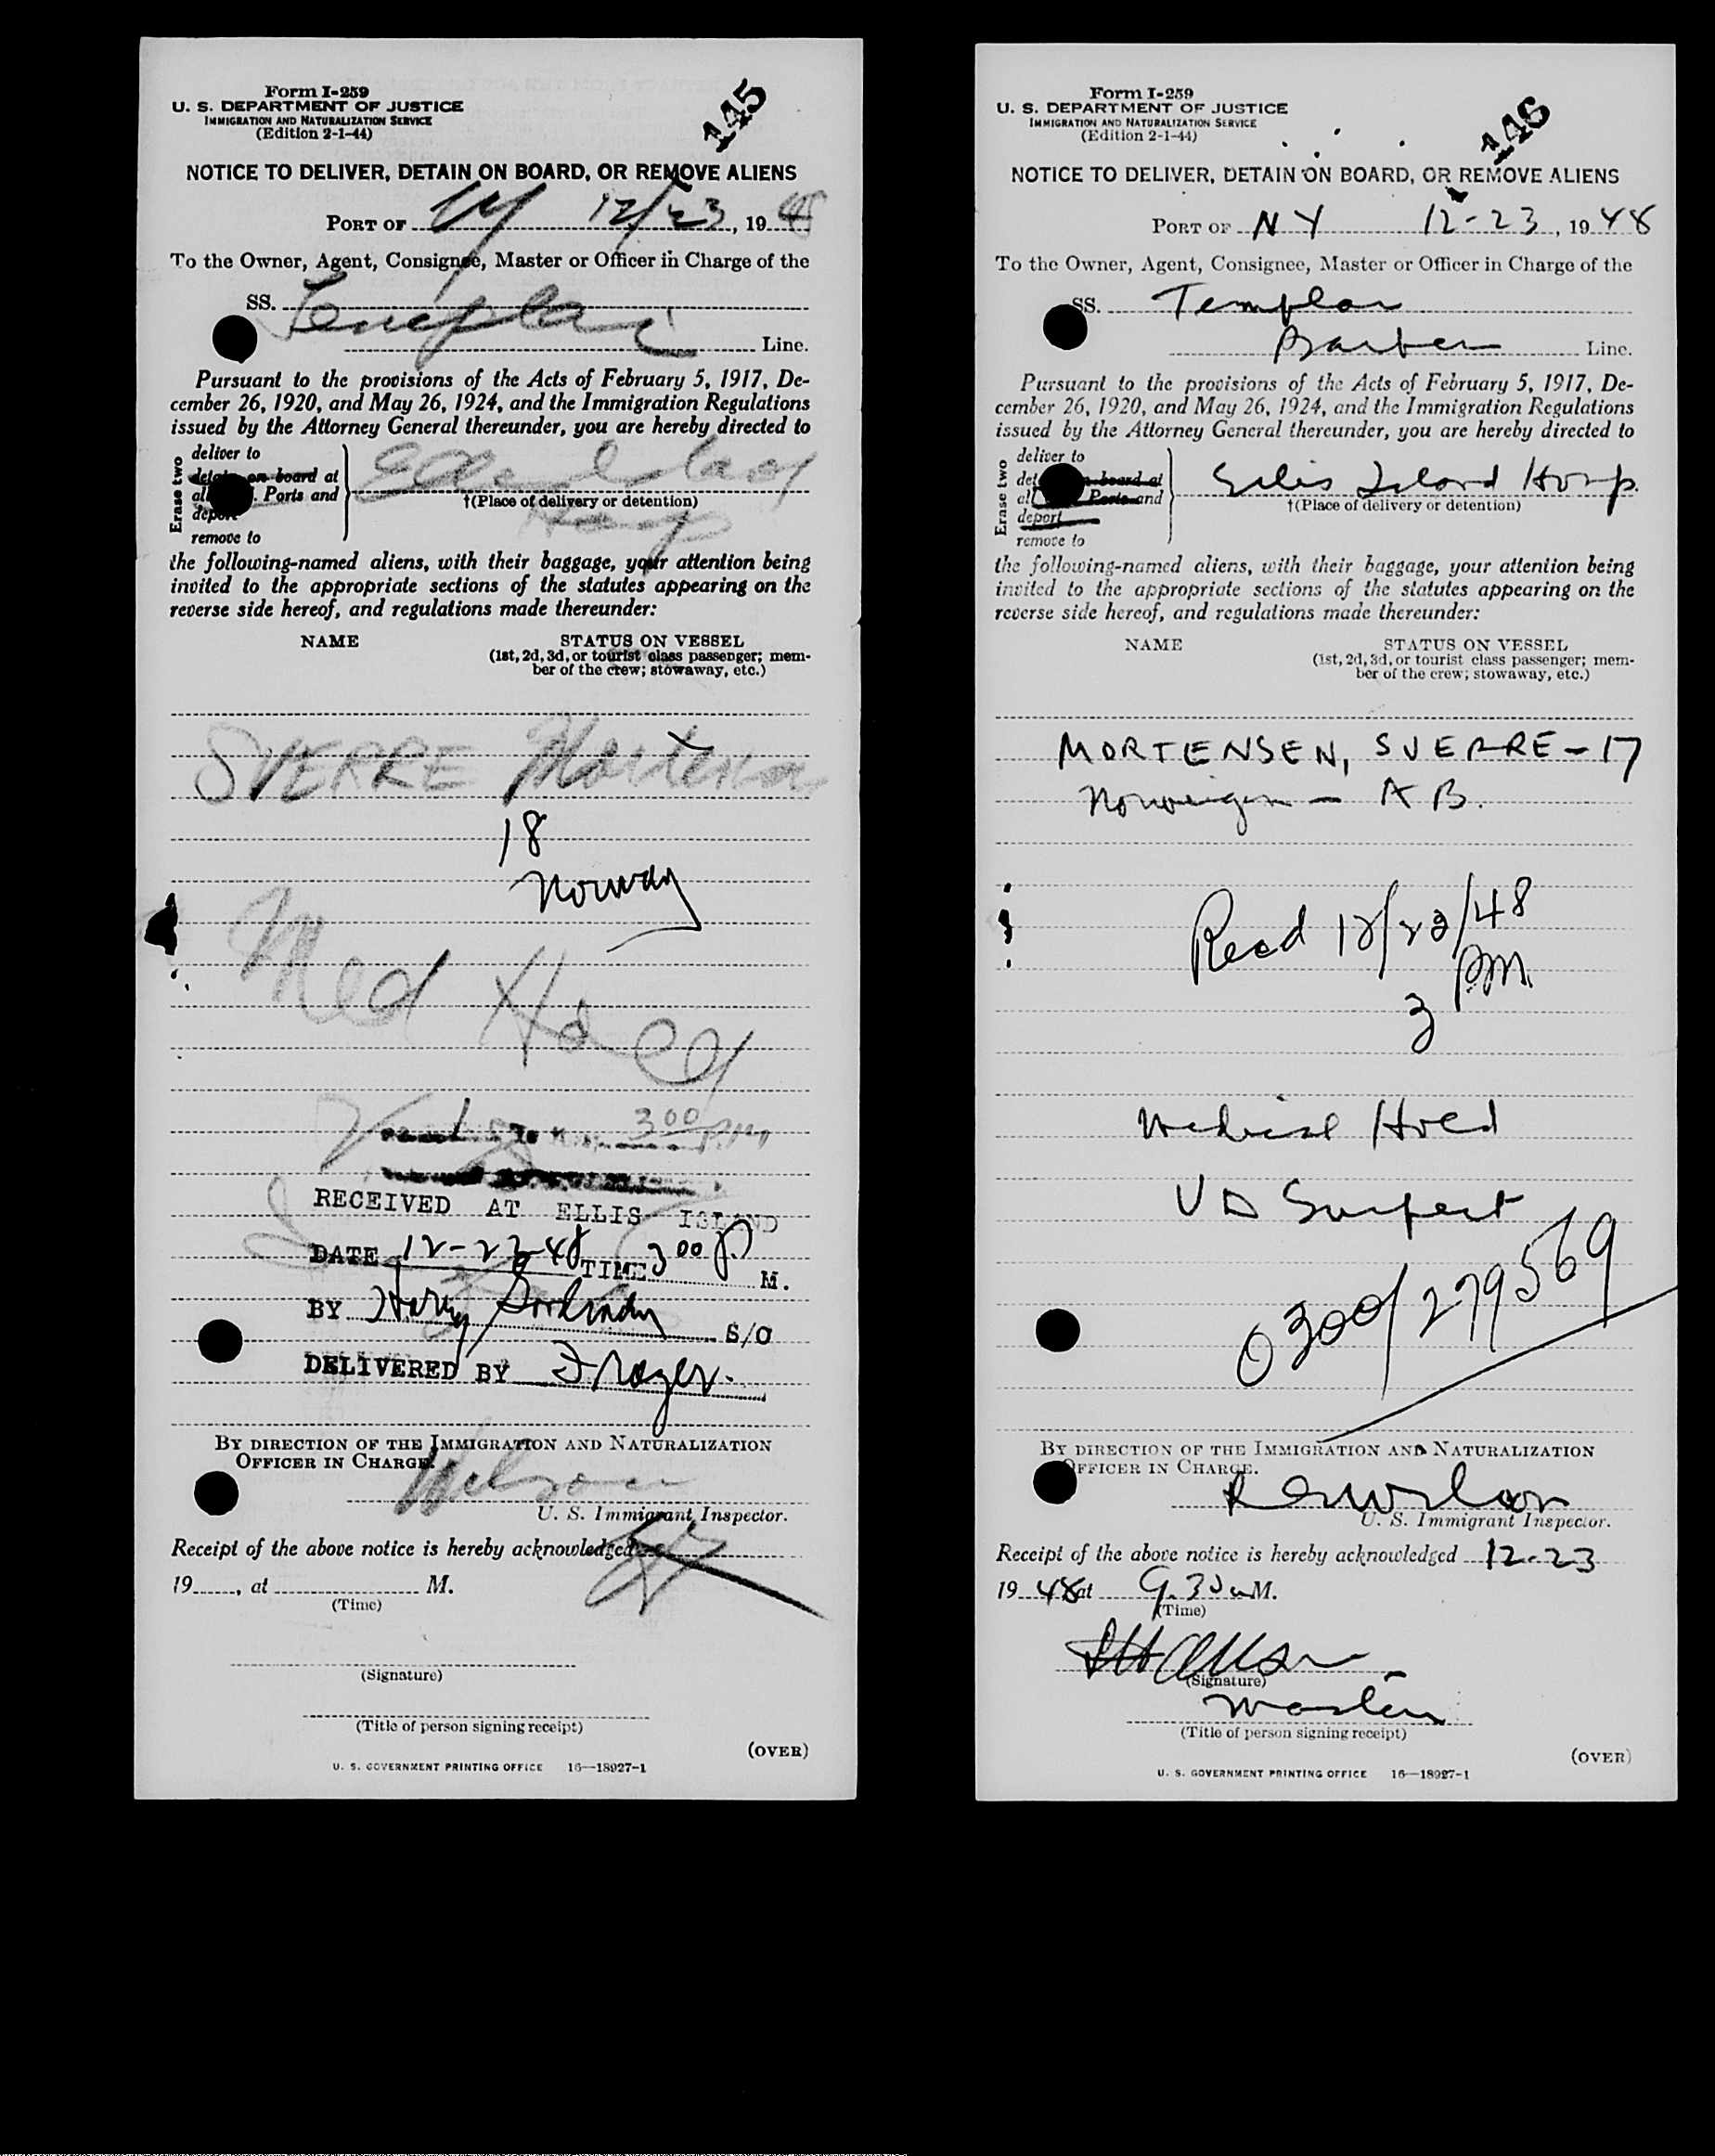 Form I-259
U. S. DEPARTMENT OF JUSTICE
IMMIGRATION AND NATURALIZATION SERVICE
(Edition 2-1-44)
145
NOTICE TO DELIVER, DETAIN ON BOARD, OR REMOVE ALIENS
PORT OF NY 12/23, 1948
To the Owner, Agent, Consignee, Master or Officer in Charge of the
SS. Templar
Line.
Pursuant to the provisions of the Acts of February 5, 1917, De-
cember 26, 1920, and May 26, 1924, and the Immigration Regulations
issued by the Attorney General thereunder, you are hereby directed to
Erase two
deliver to
detain on board at
all Ports and
deport
remove to
Ellis Island
†(Place of delivery or detention)
Hosp
the following-named aliens, with their baggage, your attention being
invited to the appropriate sections of the statutes appearing on the
reverse side hereof, and regulations made thereunder:
NAME STATUS ON VESSEL
(1st, 2d, 3d, or tourist class passenger; mem-
ber of the crew; stowaway, etc.)
SVERRE Mortensen
18
Norway
Med Hold
3 00 P.M.
RECEIVED AT ELLIS ISLAND
DATE 12-23-48 TIME 3 00 P. M.
BY Harry S/O
DELIVERED BY
BY DIRECTION OF THE IMMIGRATION AND NATURALIZATION
OFFICER IN CHARGE.
Wilson
U. S. Immigrant Inspector.
Receipt of the above notice is hereby acknowledged
19, at M.
(Time)
(Signature)
(Title of person signing receipt)
(OVER)
U. S. GOVERNMENT PRINTING OFFICE 16—18927-1
Form I-259
U. S. DEPARTMENT OF JUSTICE
IMMIGRATION AND NATURALIZATION SERVICE
(Edition 2-1-44)
146
NOTICE TO DELIVER, DETAIN ON BOARD, OR REMOVE ALIENS
PORT OF NY 12-23, 1948
To the Owner, Agent, Consignee, Master or Officer in Charge of the
SS. Templar
Barber Line.
Pursuant to the provisions of the Acts of February 5, 1917, De-
cember 26, 1920, and May 26, 1924, and the Immigration Regulations
issued by the Attorney General thereunder, you are hereby directed to
Erase two
deliver to
detain on board at
all Ports and
deport
remove to
Ellis Island Hosp.
†(Place of delivery or detention)
the following-named aliens, with their baggage, your attention being
invited to the appropriate sections of the statutes appearing on the
reverse side hereof, and regulations made thereunder:
NAME STATUS ON VESSEL
(1st, 2d, 3d, or tourist class passenger; mem-
ber of the crew; stowaway, etc.)
MORTENSEN, SVERRE - 17
Norwegian - A B.
Recd 12/23/48
3 PM
Medical Hold
VD Suspect
0300/279569
BY DIRECTION OF THE IMMIGRATION AND NATURALIZATION
OFFICER IN CHARGE.
Wilson
U. S. Immigrant Inspector.
Receipt of the above notice is hereby acknowledged 12-23
1948 at 9.30 a M.
(Time)
(Signature)
Master
(Title of person signing receipt)
(OVER)
U. S. GOVERNMENT PRINTING OFFICE 16—18927-1